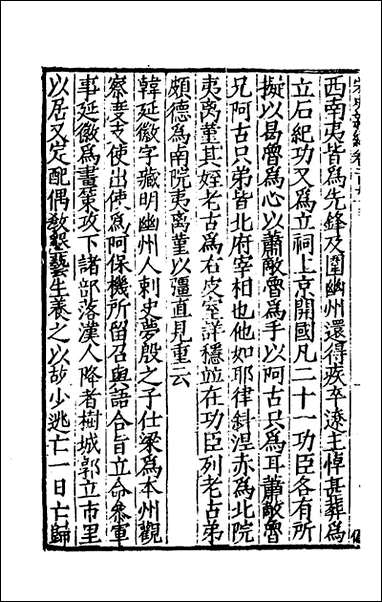 宋史新編卷
西南夷皆爲先鋒及圍幽州還得疾卒遼主悼甚葬爲
立石紀功又爲立祠上京開國凡二十一功臣各有所
擬以曷魯爲心以蕭敵魯爲手以阿古只爲耳蕭敵魯
兄阿古只弟皆北府宰相也他如耶律斜涅赤爲北院
夷离堇其姪老古爲右皮室詳穩並在功臣列老古弟
頗德爲南院夷离堇以彊直見重云
韓延徽字藏明幽州人刺史夢殷之子仕梁爲本州觀
察度支使出使爲阿保機所留召與語合旨立命叅軍
事延徽爲畫策攻下諸部落漢人降者樹城郭立市里
以居又定配偶敎墾藝生養之以故少逃亡一日亡歸